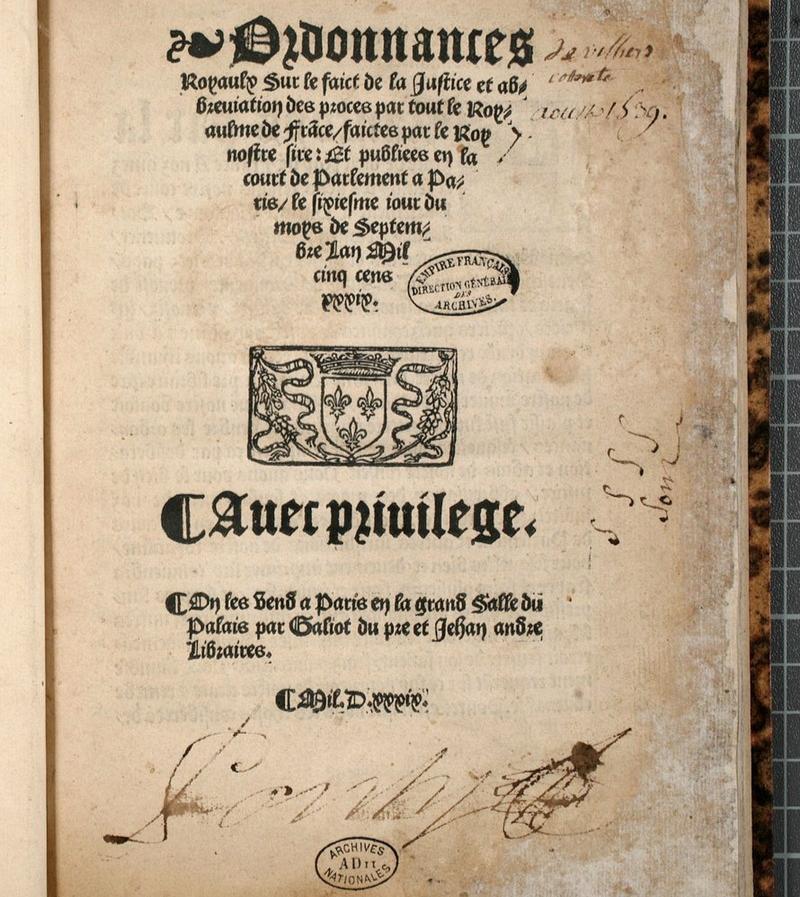 Ordonnances
Royaulx Sur le faict de la Justice et ab⸗
breuiation des proces par tout le Roy⸗
aulme de Frāce/faictes par le Roy
nostre sire: Et publiees en la
court de Parlement a Pa⸗
ris/ le sixiesme iour du
moys de Septem⸗
bre Lan Mil
cinq cens
xxxix.
de villers
aoust 1539.
EMPIRE FRANÇAIS
DIRECTION GÉNÉRALE
DES
ARCHIVES.
¶Auec priuilege.
¶On les vend a Paris en la grand Salle du
Palais par Galiot du pre et Jehan andre
Libraires.
¶Mil.D.xxxix.
ARCHIVES
AD II
NATIONALES